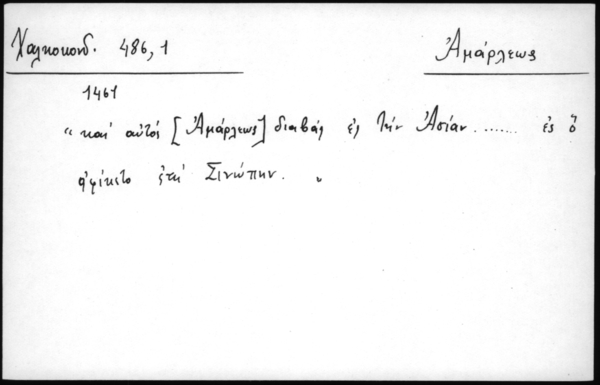 Χαλκοκονδ. 486,1
Ἀμάρλεως
1461
"καὶ αὐτὸς [Ἀμάρλεως] διαβὰς ἐς τὴν Ἀσίαν ....... ἐς ὃ
ἀφίκετο ἐπὶ Σινώπην. "